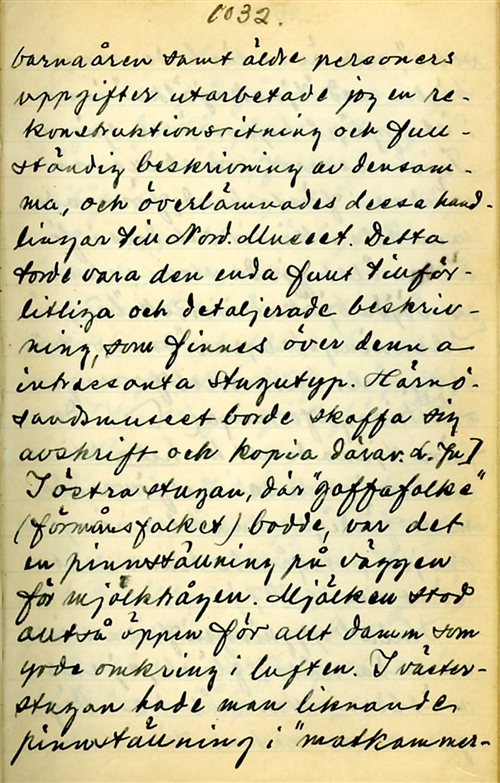 1032.
barnaåren samt äldre personers
uppgifter utarbetade jag en re-
konstruktionsritning och full-
ständig beskrivning av densam-
ma, och överlämnades dessa hand-
lingar till Nord. Museet. Detta
torde vara den enda fullt tillför-
litliga och detaljerade beskriv-
ning, som finnes över denna
intressanta stugutyp. Härnö-
sandsmuseet borde skaffa sig
avskrift och kopia därav.
I östra stugan, där "goffafolke"
(förmånsfolket) bodde, var det
en pinnställning på väggen
för mjölktrågen. Mjölken stod
alltså öppen för allt damm som
yrde omkring i luften. I väster-
stugan hade man liknande
pinnställning i "matkammer-